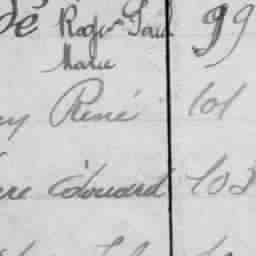 dé Roger Paul 99
Marie
y René 101
re Edouard 103